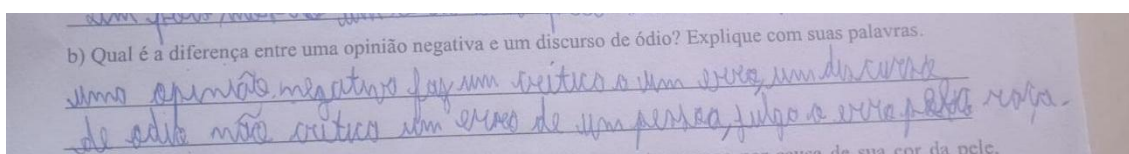 b) Qual é a diferença entre uma opinião negativa e um discurso de ódio? Explique com suas palavras.
uma opinião negativa faz um crítica a um erro, um discurso
de odio não critica um erro de um pessoa, julga o erro pela raça.
da sua cor da pele.